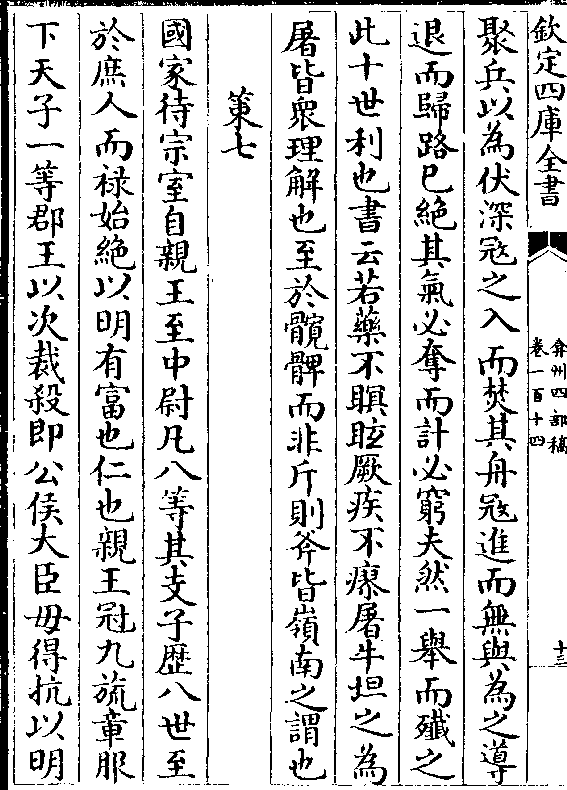 欽定四庫全書
弇州四部稿
卷一百十四
十三
聚兵以為伏深冦之入而焚其舟冦進而無與為之導
退而歸路已絶其氣必奪而計必窮夫然一舉而殱之
此十世利也書云若藥不瞑眩厥疾不瘳屠牛坦之為
屠皆衆理解也至於髖髀而非斤則斧皆嶺南之謂也
策七
國家待宗室自親王至中尉凡八等其支子歴八世至
於庶人而禄始絶以明有富也仁也親王冠九旒章服
下天子一等郡王以次裁殺即公侯大臣毋得抗以明